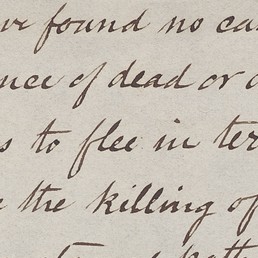 found no ca
of dead or
to flee in ter
the killing of